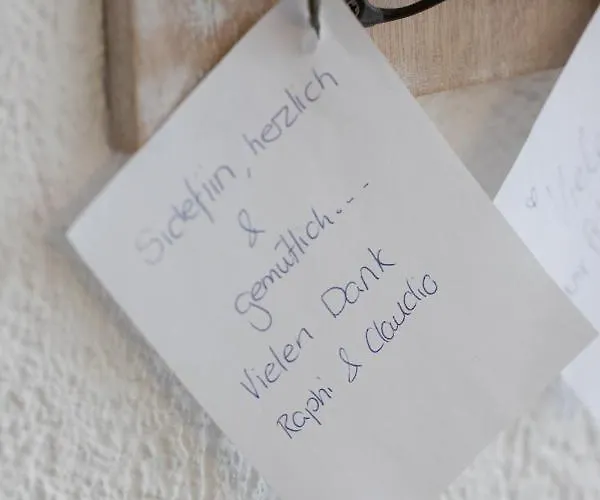 Sidefiin, herzlich
&
gemütlich...
Vielen Dank
Raphi & Claudia